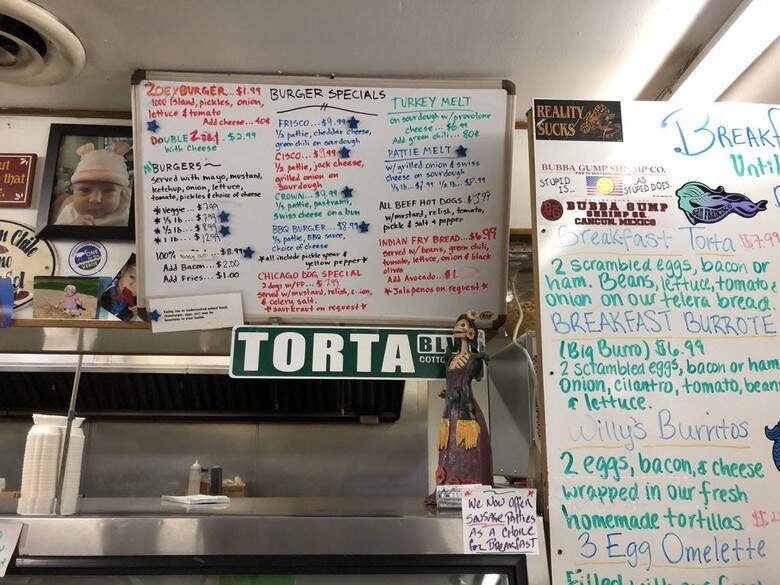 ZOEYBURGER...$1.99
1000 Island, pickles, onion,
lettuce & tomato
Add cheese... 40¢
DOUBLE $2.99
With Cheese
BURGERS
served with mayo, mustard,
ketchup, onion, lettuce,
tomato, pickles & choice of cheese
Veggie
1/3 lb
1/2 lb
1 lb
100% $8.99
Add Bacon.... $2.00
Add Fries.... $1.00
BURGER SPECIALS
FRISCO... $9.99
1/2 pattie, cheddar cheese,
green chili on sourdough
CISCO... $9.99
1/2 pattie, jack cheese,
grilled onion on
sourdough
CROWN... $9.99
1/2 pattie, pastrami,
swiss cheese on a bun
BBQ BURGER... $8.99
1/2 pattie, BBQ sauce,
choice of cheese
*All include pickle spear &
yellow pepper*
CHICAGO DOG SPECIAL
2 dogs w/FF...
served w/mustard, relish, onion,
& celery salt.
*Saurkraut on request*
TURKEY MELT
on sourdough w/provolone
cheese... $6.99
Add green chili... 80¢
PATTIE MELT
w/grilled onion & swiss
cheese on sourdough
1/3 lb..$7.99 1/2 lb.. $8.99
ALL BEEF HOT DOGS $3.99
w/mustard, relish, tomato,
pickle & salt & pepper
INDIAN FRY BREAD...$6.99
served w/beans, green chili,
tomato, lettuce, onion & black
olives
Add Avocado...$1
*Jalapenos on request*
TORTA BLV
COTTO
We Now Offer
Sausage Patties
As A Choice
For Breakfast
REALITY
SUCKS
BUBBA GUMP SHRIMP CO.
STUPID
IS...
AS
STUPID DOES
BUBBA GUMP
SHRIMP CO.
CANCUN, MEXICO
SAN FRANCISCO
BREAKF
Until
Breakfast Torta $7.99
2 scrambled eggs, bacon or
ham. Beans, lettuce, tomato &
onion on our telera bread
BREAKFAST BURROTE
(Big Burro) $6.99
2 sctambled eggs, bacon or ham
Onion, cilantro, tomato, bean
& lettuce.
Willy's Burritos
2 eggs, bacon, & cheese
wrapped in our fresh
homemade tortillas
3 Egg Omelette
Filled